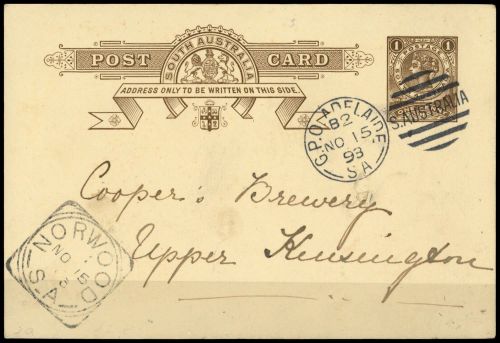 SOUTH AUSTRALIA
POST CARD
ADDRESS ONLY TO BE WRITTEN ON THIS SIDE.
1 1
POSTAGE
G.P.O. ADELAIDE
B2
NO 15
93
S A
S. AUSTRALIA
Cooper's Brewery
Upper Kensington
NORWOOD
NO 15
S-A